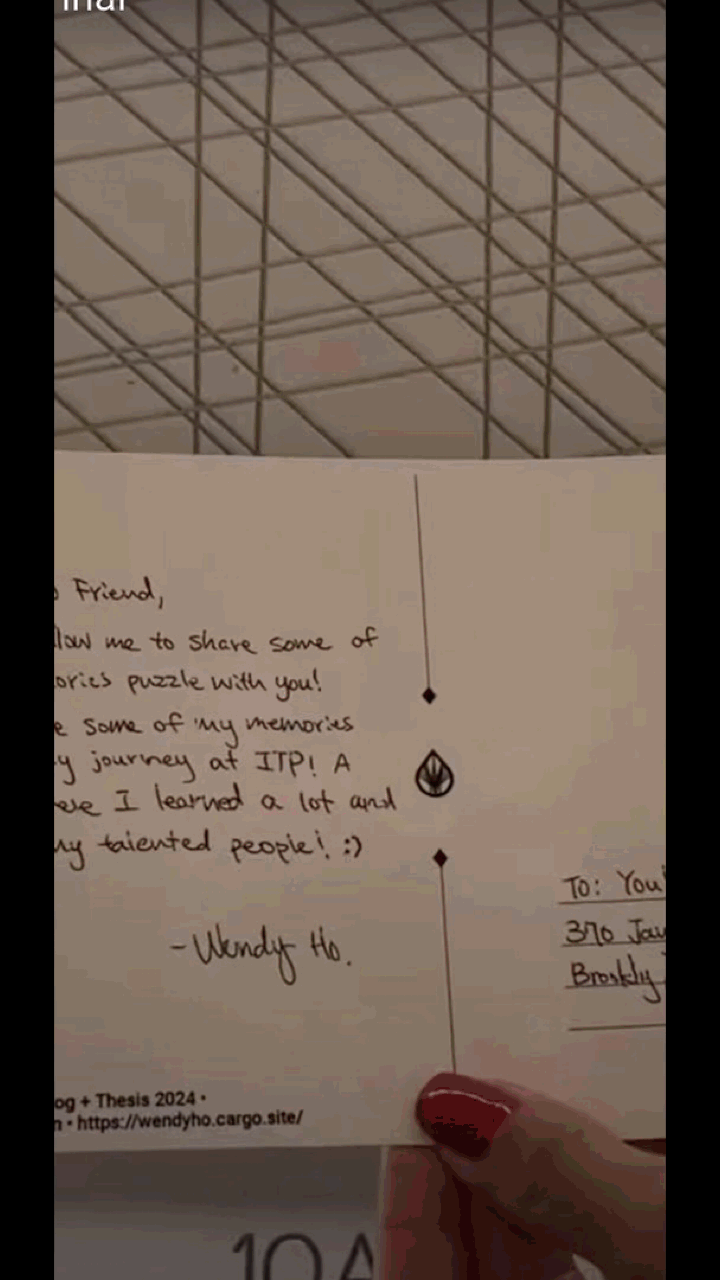 Friend,
me to share some of
puzzle with you!
some of my memories
journey at ITP! A
I learned a lot and
talented people! :)
-Wendy Ho.
To: You
370
+ Thesis 2024 •
• https://wendyho.cargo.site/
10A